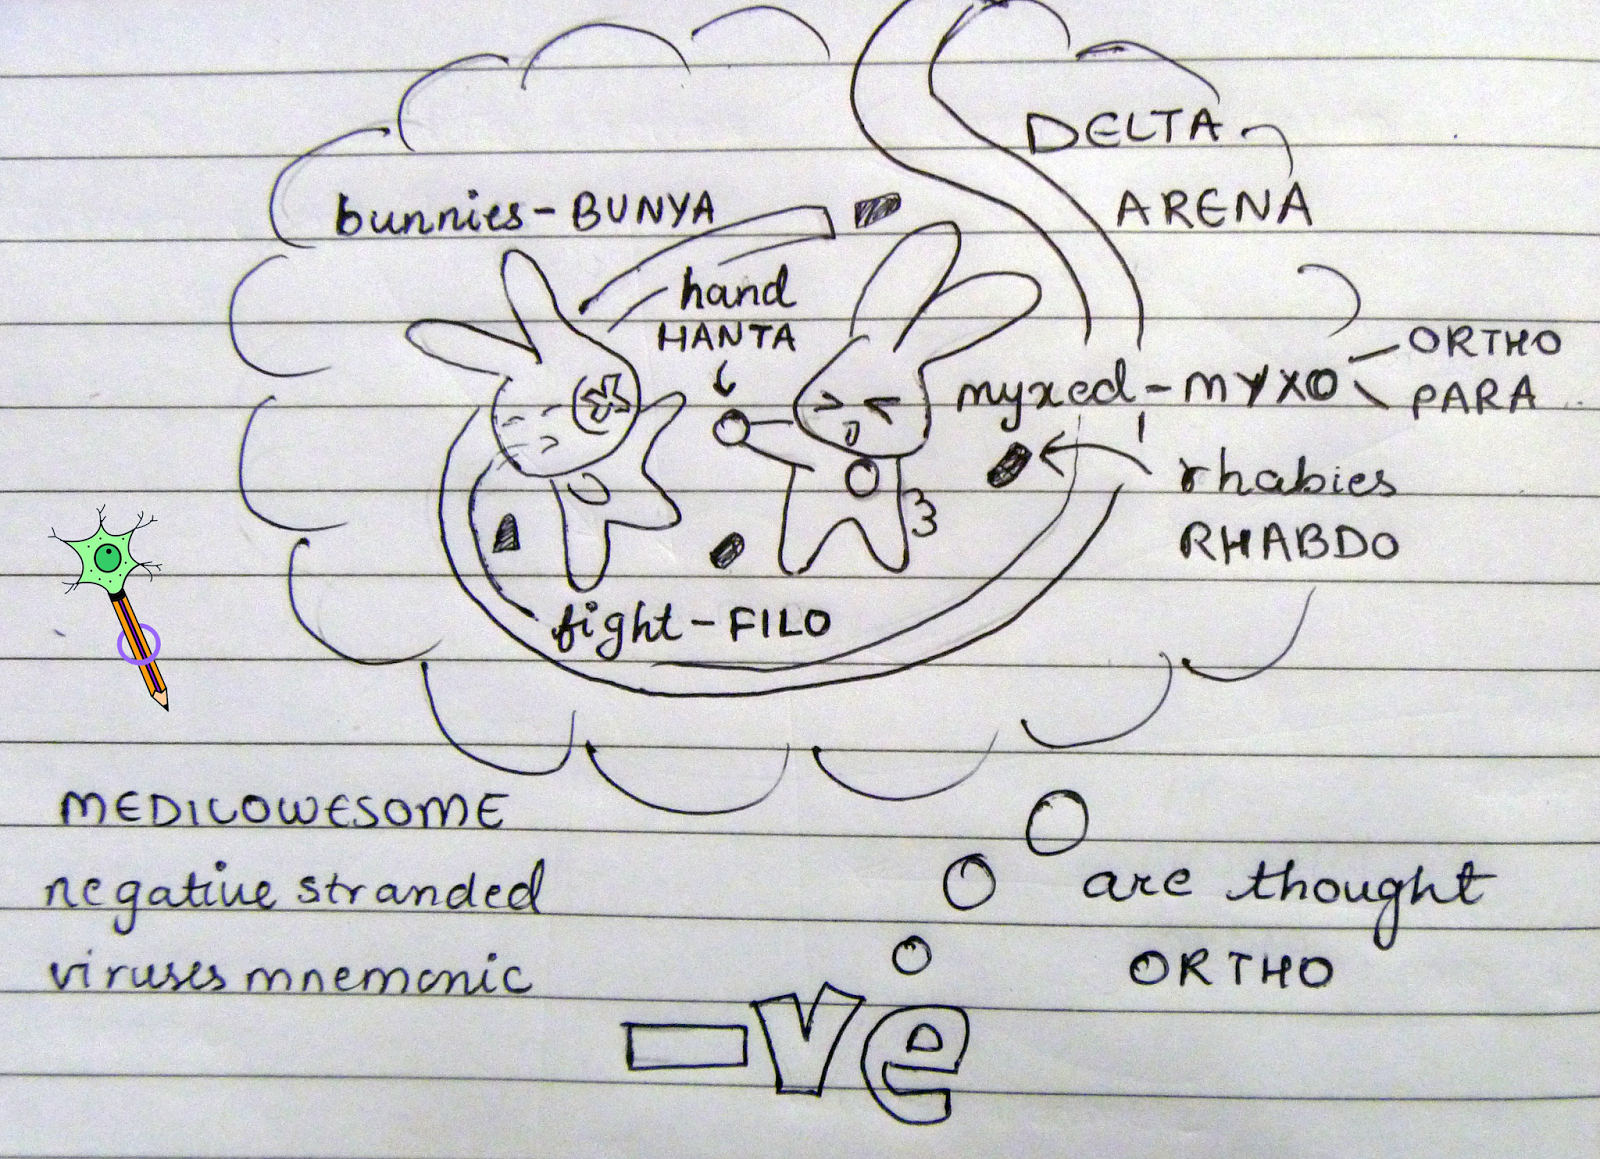 DELTA
ARENA
bunnies - BUNYA
hand
HANTA
myxed - MYXO
ORTHO
PARA
rhabies
RHABDO
fight - FILO
MEDICOWESOME
negative stranded
viruses mnemonic
are thought
ORTHO
-ve